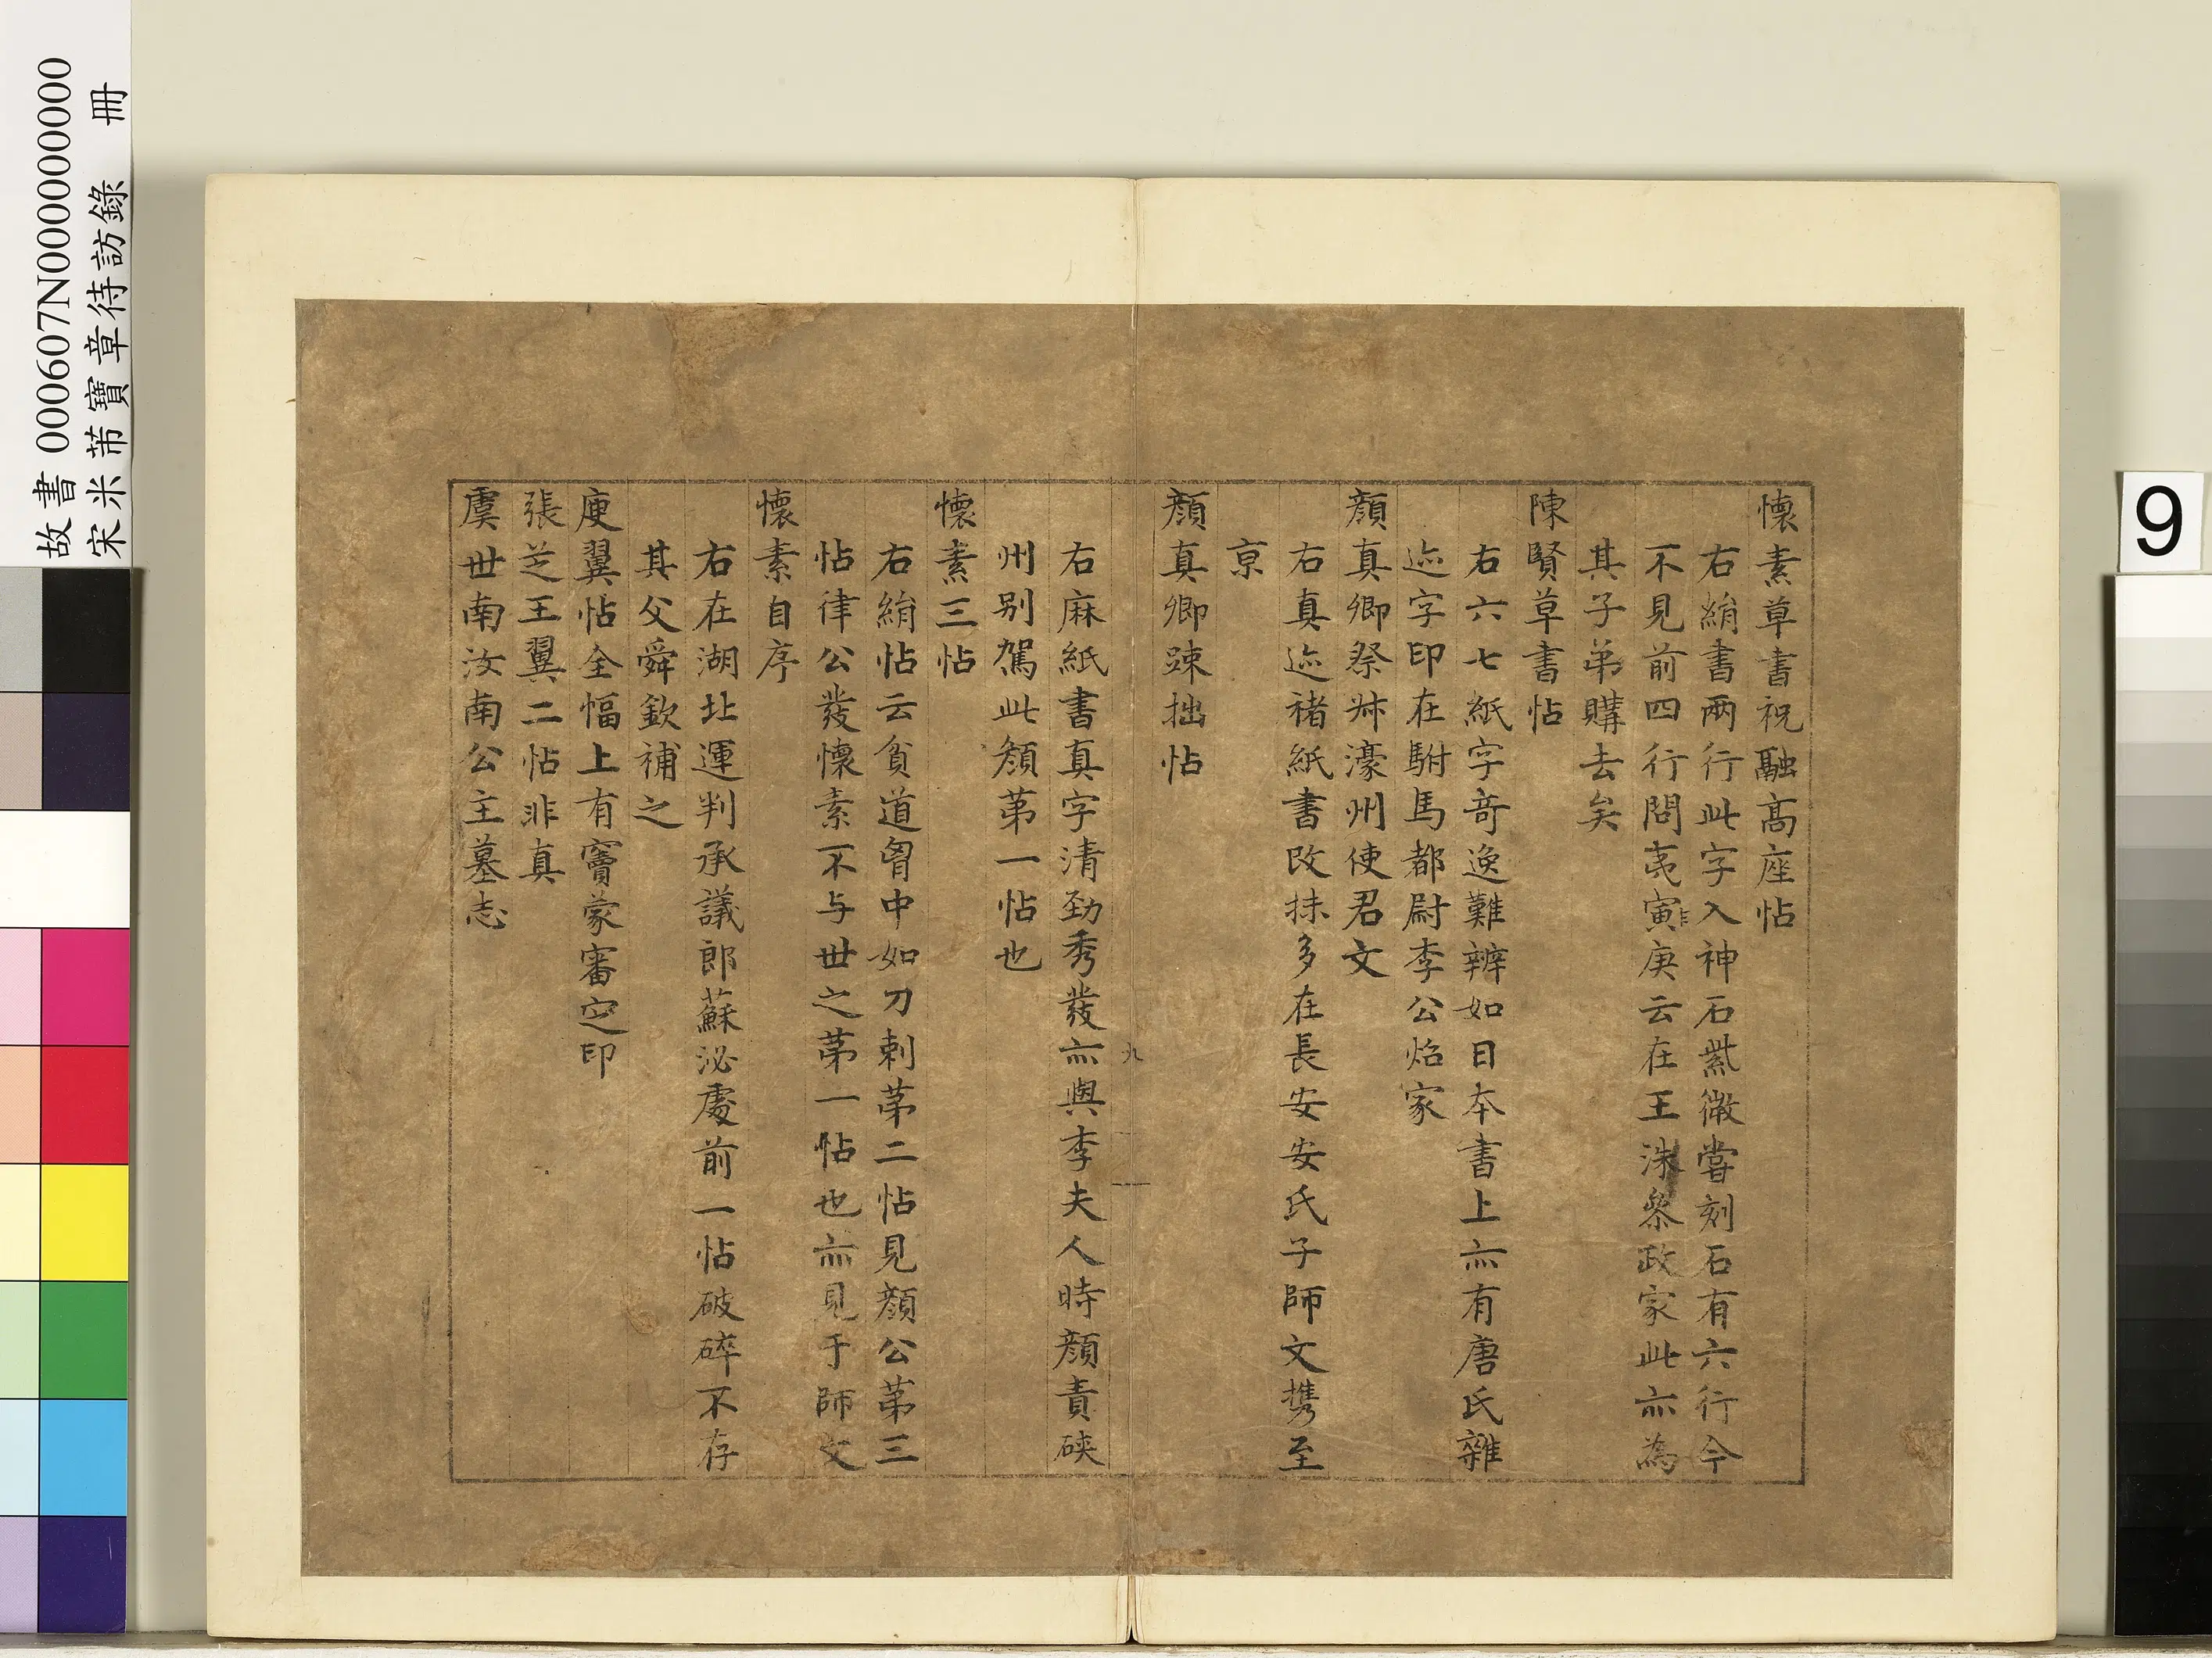 懷素草書祝融高座帖
右絹書兩行此字入神石紫微嘗刻石有六行今
不見前四行問夷寅庚云在王洙叅政家此亦為
其子弟購去矣
陳賢草書帖
右六七紙字奇逸難辨如日本書上亦有唐氏雜
迹字印在駙馬都尉李公炤家
顏真卿祭姪濠州使君文
右真迹楮紙書改抹多在長安安氏子師文携至
京
顏真卿疎拙帖
右麻紙書真字清勁秀發亦與李夫人時顏責硤
州别駕此顏第一帖也
懷素三帖
右絹帖云貧道胷中如刀刺第二帖見顏公第三
帖律公發懷素不与世之第一帖也亦見于師文
懷素自序
右在湖北運判承議郎蘇泌處前一帖破碎不存
其父舜欽補之
庾翼帖全幅上有竇蒙審定印
張芝王翼二帖非真
虞世南汝南公主墓志
九
故書 000607N000000000
宋米芾寶章待訪錄 冊
9